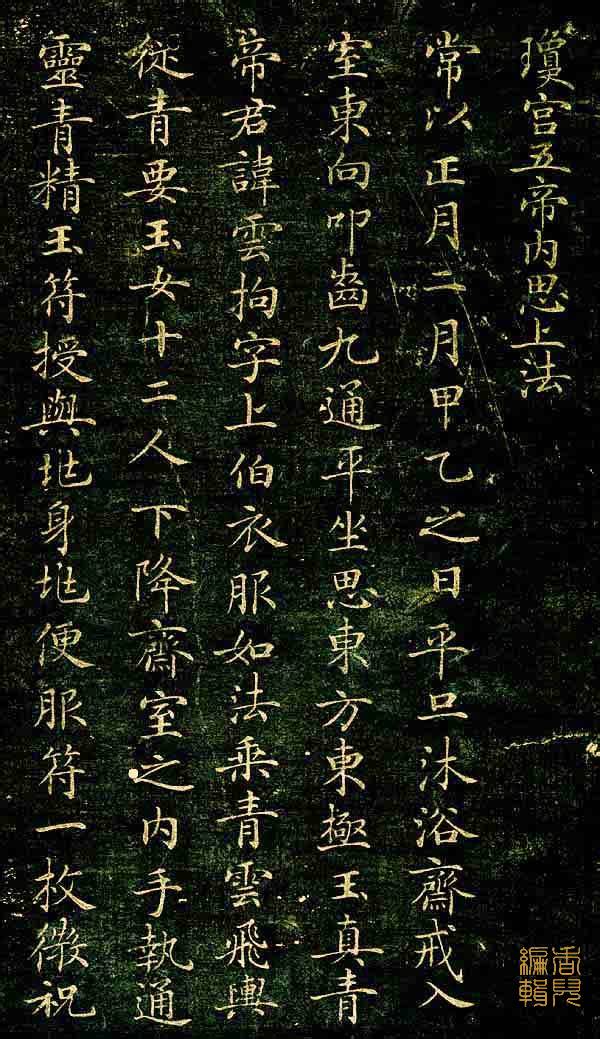 瓊宫五帝内思上法
常以正月二月甲乙之日平旦沐浴齋戒入
室東向叩齒九通平坐思東方東極玉真青
帝君諱雲拘字上伯衣服如法乘青雲飛輿
從青要玉女十二人下降齋室之内手執通
靈青精玉符授與地身地便服符一枚微祝
香兒編輯